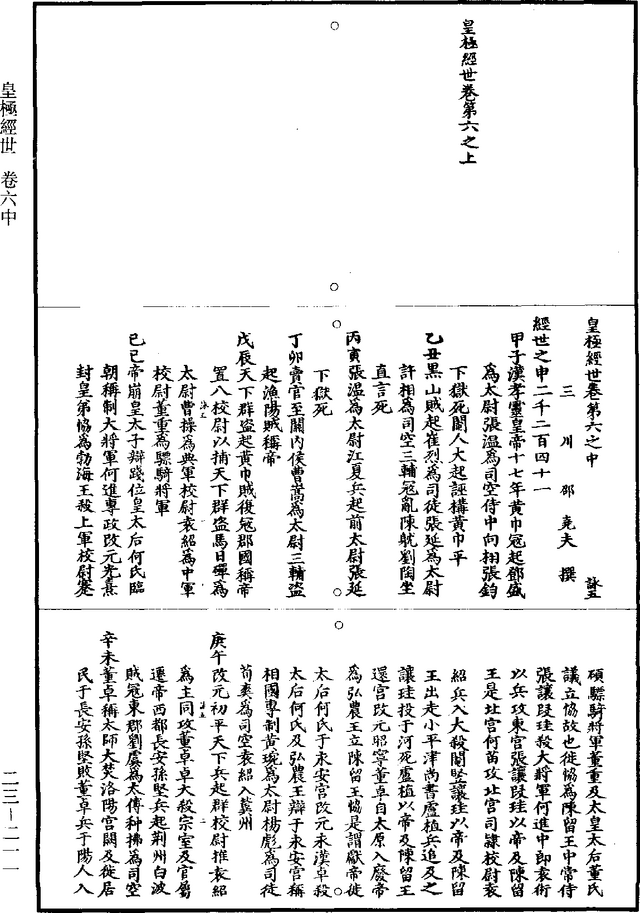 皇極經世 卷六中
二三—二一一
皇極經世卷第六之上
皇極經世卷第六之中
詠五
三川邵堯夫撰
經世之申二千二百四十一
甲子漢孝靈皇帝十七年黃巾冦起鄧盛
為太尉張溫為司空侍中向栩張鈞
下獄死閹人大起誣構黃巾平
乙丑黑山賊起崔烈為司徒張延為太尉
許相為司空三輔冦亂陳躭劉陶坐
直言死
丙寅張溫為太尉江夏兵起前太尉張延
下獄死
丁卯賣官至關內侯曹嵩為太尉三輔盜
起漁陽賊稱帝
戊辰天下群盜起黃巾賊後冦郡國稱帝
置八校尉以捕天下群盜馬日磾為
太尉曹操為典軍校尉袁紹為中軍
校尉董重為驃騎將軍
己巳帝崩皇太子辯踐位皇太后何氏臨
朝稱制大將軍何進專政改元光熹
封皇弟協為勃海王殺上軍校尉蹇
碩驃騎將軍董重及太皇太后董氏
議立協故也徙協為陳留王中常侍
張讓段珪殺大將軍何進中郎袁術
以兵攻東宮張讓段珪以帝及陳留
王是北宮何苗攻北宮司隸校尉袁
紹兵入大殺閹豎讓珪以帝及陳留
王出走小平津尚書盧植兵追及之
讓珪投于河死盧植以帝及陳留王
還宮改元昭寧董卓自太原入廢帝
為弘農王立陳留王協是謂獻帝徙
太后何氏于永安宮改元永漢卓殺
太后何氏及弘農王辯于永安宮稱
相國專制黃琬為太尉楊彪為司徒
荀爽為司空袁紹入冀州
庚午改元初平天下兵起群校尉推袁紹
為主同攻董卓卓大殺宗室及官屬
遷帝西都長安孫堅兵起荊州白波
賊冦東郡劉虞為太傅种拂為司空
辛未董卓稱太師大焚洛陽宮闕及徙居
民于長安孫堅敗董卓兵于陽人入